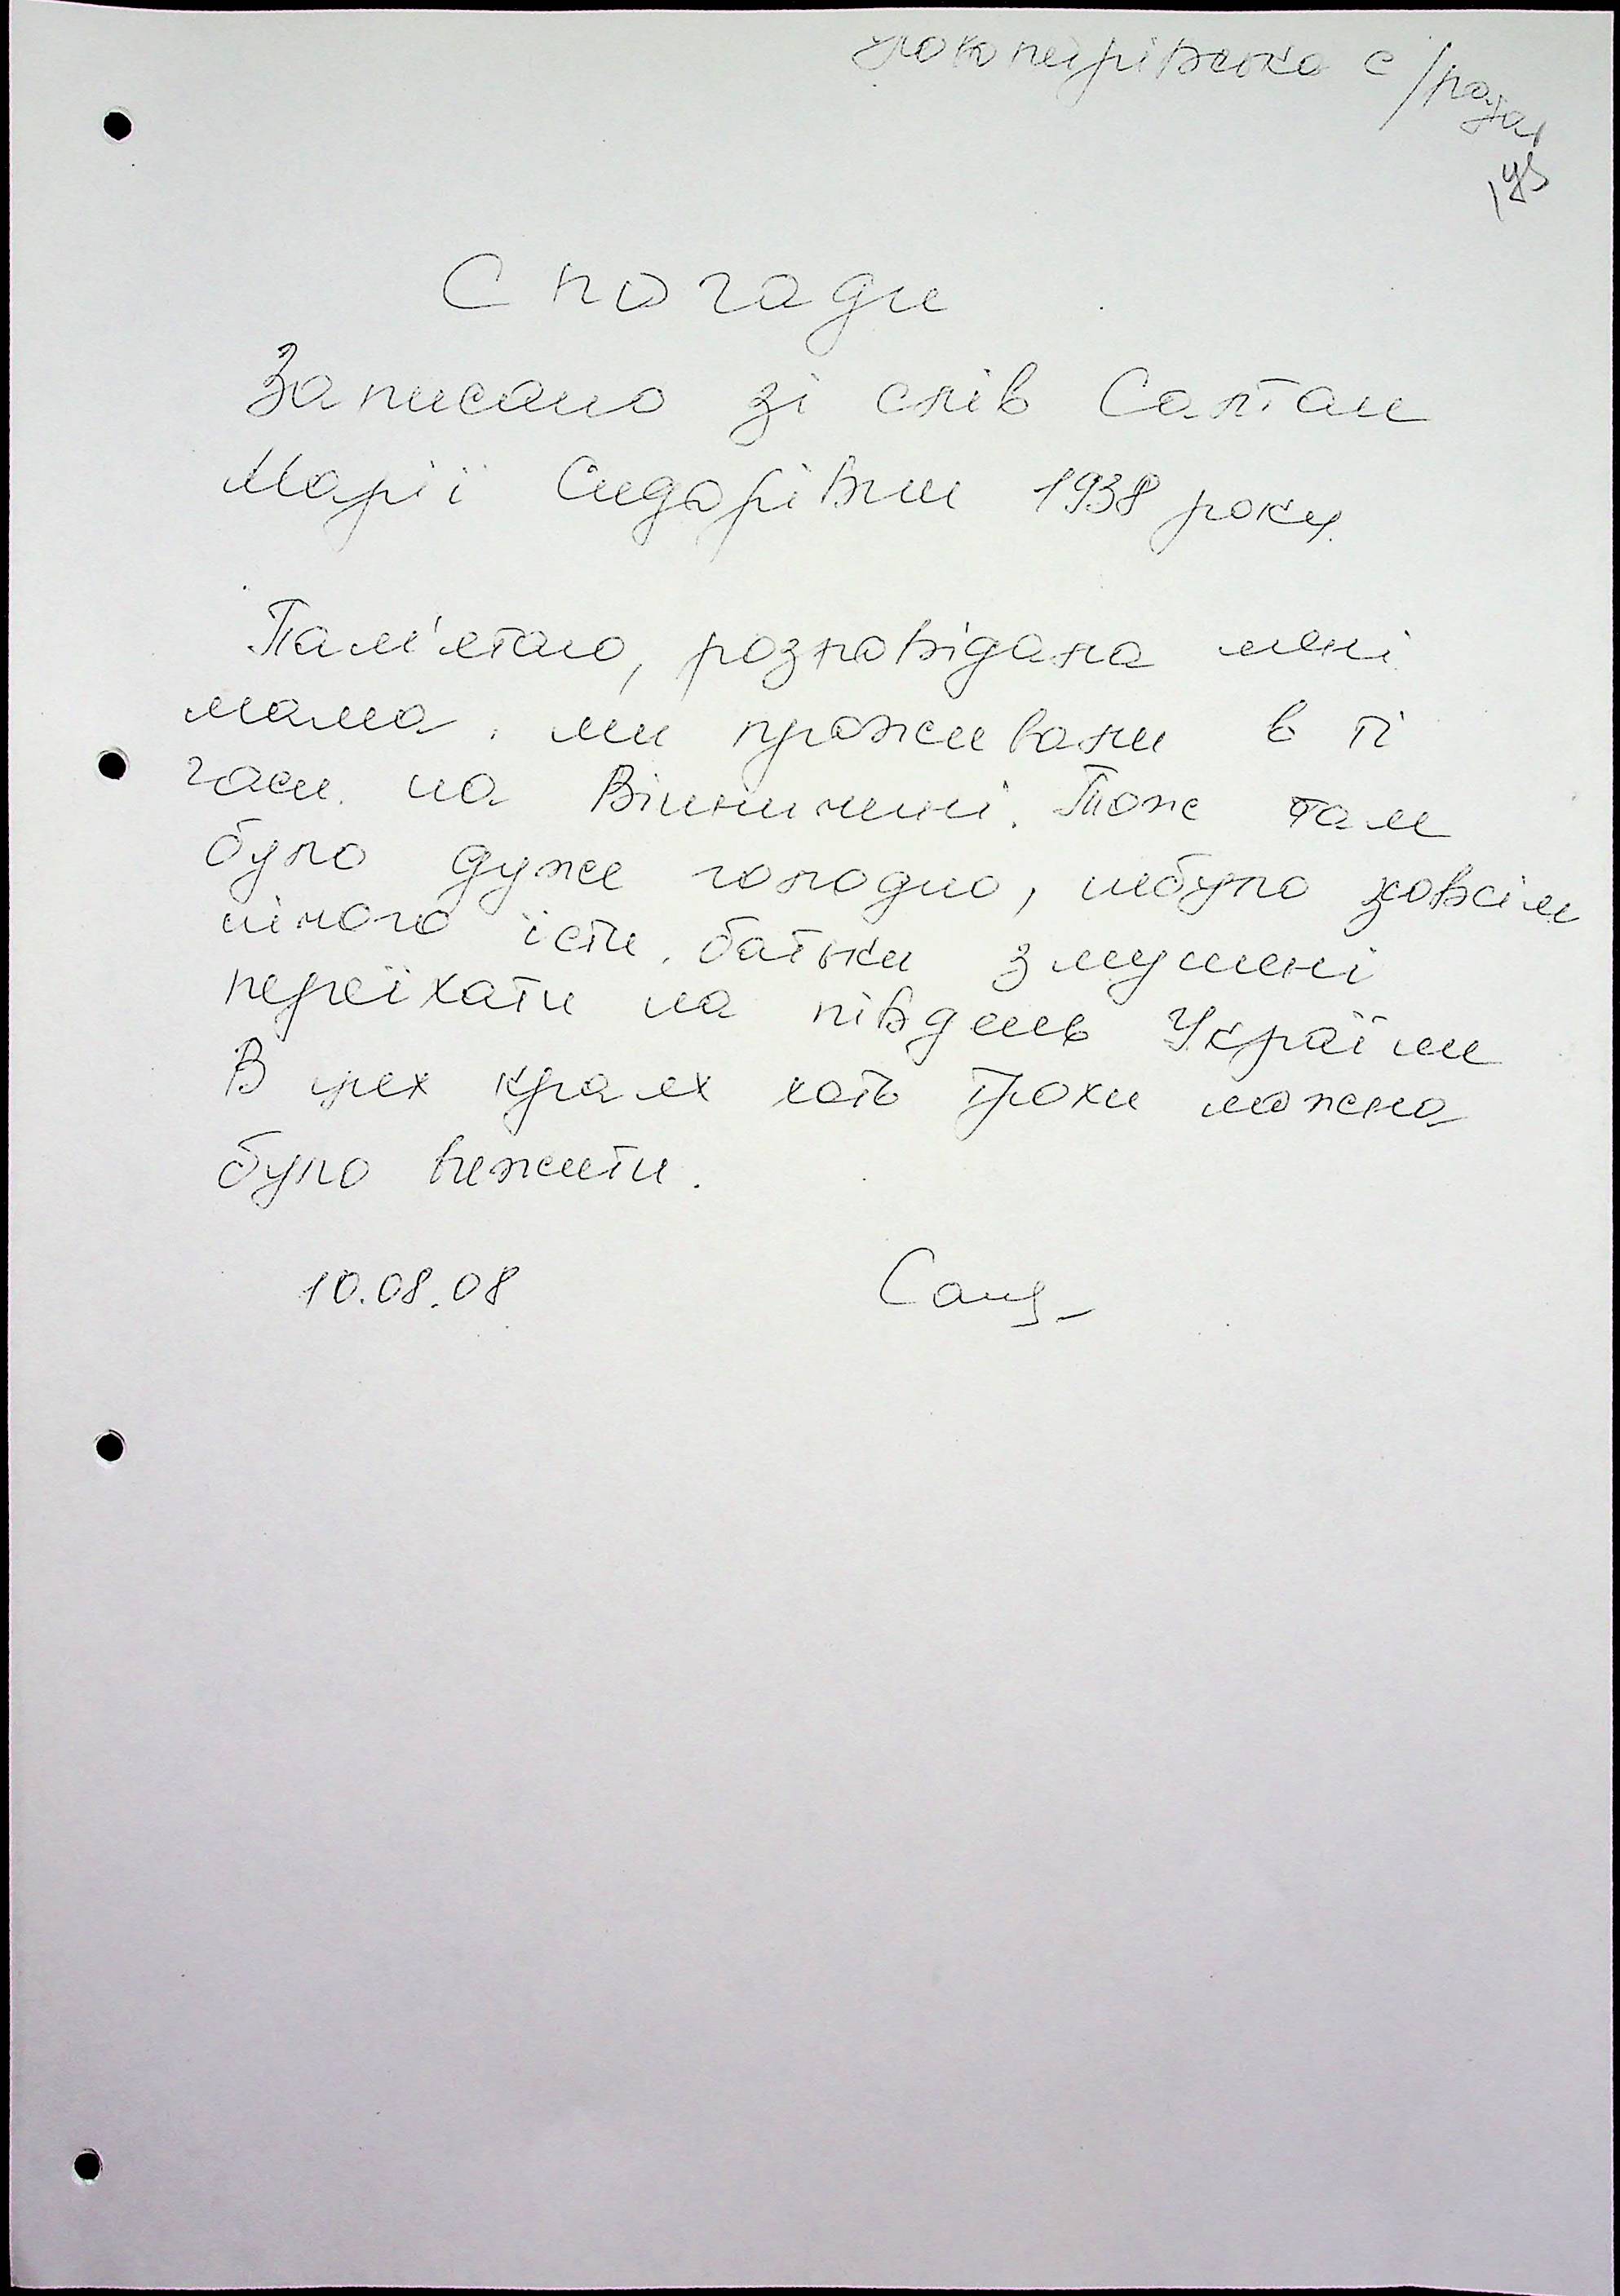 с/рада
Спогади
Записано зі слів Салтан
Марії Сидорівни 1938 року.
Пам'ятаю, розповідала мені
мама. ми проживали в ті
часи на Вінничині. Тож там
було дуже голодно, небуло зовсім
нічого їсти. батьки змушені
переїхати на південь України
В цех краях хоть трохи можна
було вижити.
10.08.08